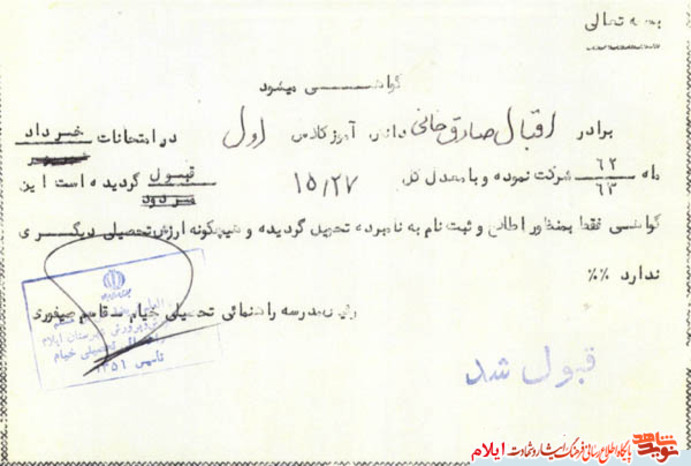 بسمه تعالی
گواهی میشود
برادر اقبال صادق خانی دانش آموز کلاس اول در امتحانات خرداد
شهریور
ماه ۶۲ شرکت نموده و با معدل کل ۱۵/۲۷ قبول گردیده است این
۶۳ مردود
گواهی فقط بمنظور اطلاع و ثبت نام به نامبرده تحویل گردیده و هیچگونه ارزش تحصیلی دیگری
ندارد %%
رئیس مدرسه راهنمائی تحصیلی خیام - قاسم صیفوری
آموزش و پرورش شهرستان ایلام
راهنمائی تحصیلی خیام
تاسیس ۱۳۵۱
قبول شد
نوید شاهد پایگاه اطلاع رسانی فرهنگ ایثار و شهادت ایلام